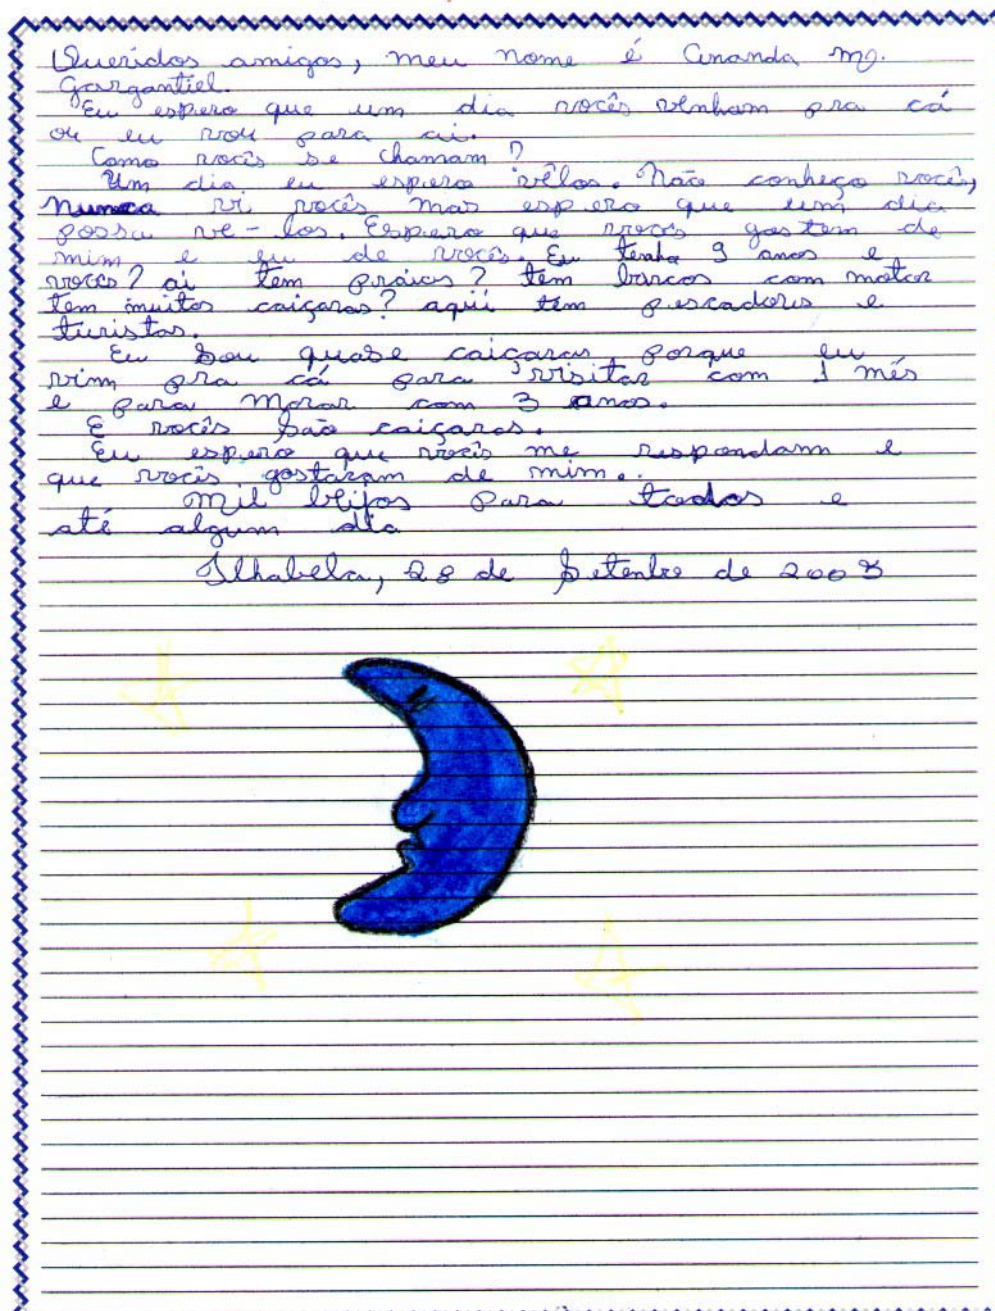 Queridos amigos, meu nome é Ananda M.
Gargantiel.
Eu espero que um dia vocês venham pra cá
ou eu vou para ai.
Como vocês se chamam?
Um dia eu espero vêlos. Não conheço vocês,
Nunca vi vocês mas espero que um dia
possa ve-los. Espero que vocês gostem de
mim e eu de vocês. Eu tenho 9 anos e
vocês? ai tem práias? tem barcos com motor
tem muitos caiçaras? aqui tem pescadores e
turistas.
Eu Sou quase caiçaras, porque eu
vim pra cá para visitar com 1 mês
e para morar com 3 anos.
E vocês São caiçaras.
Eu espero que vocês me respondam e
que vocês gostaram de mim.
Mil beijos para todos e
até algum dia
Ilhabela, 28 de Setenbro de 2003